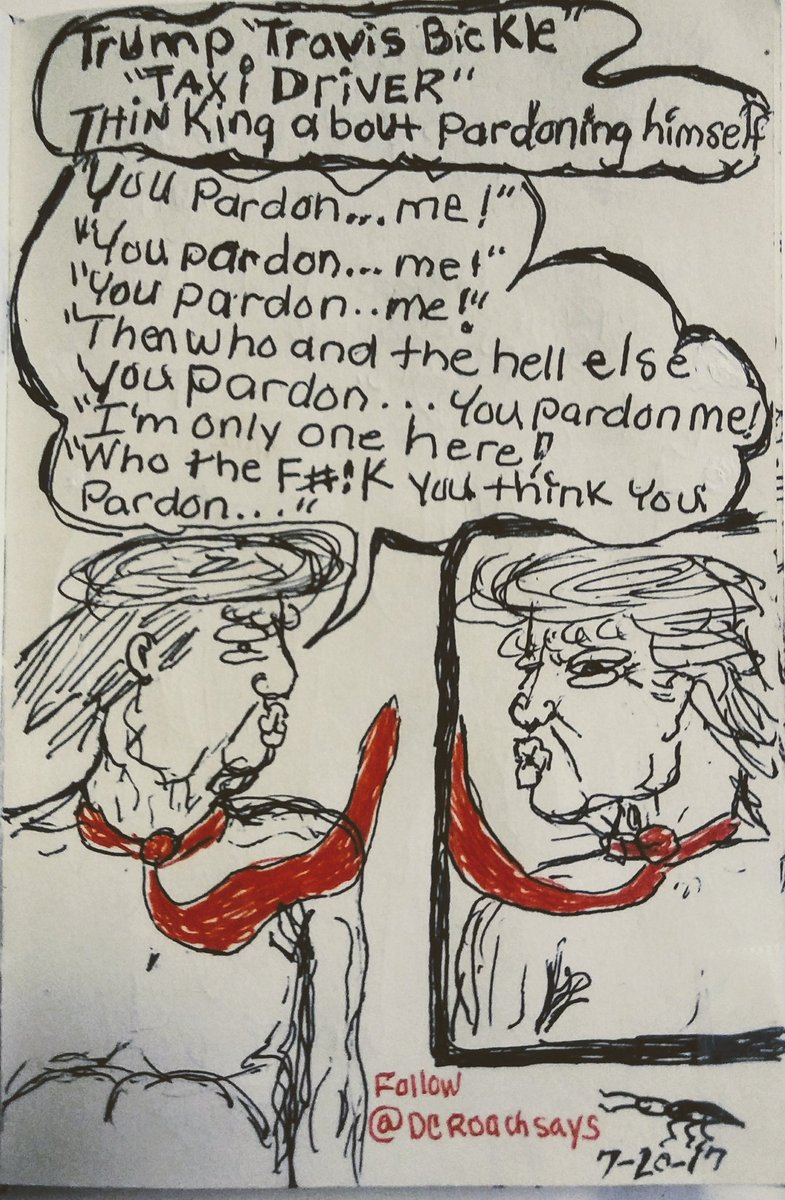 Trump "Travis Bickle"
"TAXI DRIVER"
THINKing about pardoning himself
"You pardon... me!"
"You pardon... me!"
"You pardon.. me!"
"Then who and the hell else
You pardon... You pardon me!
"I'm only one here!"
"Who the F#!K you think you
pardon..."
Follow
@DCRoachsays
7-20-17